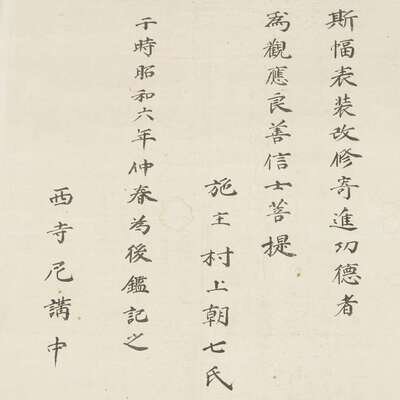 斯幅表装改修寄進功德者
為觀應良善信士菩提
施主村上朝七氏
于時昭和六年仲春為後鑑記之
西寺尼講中